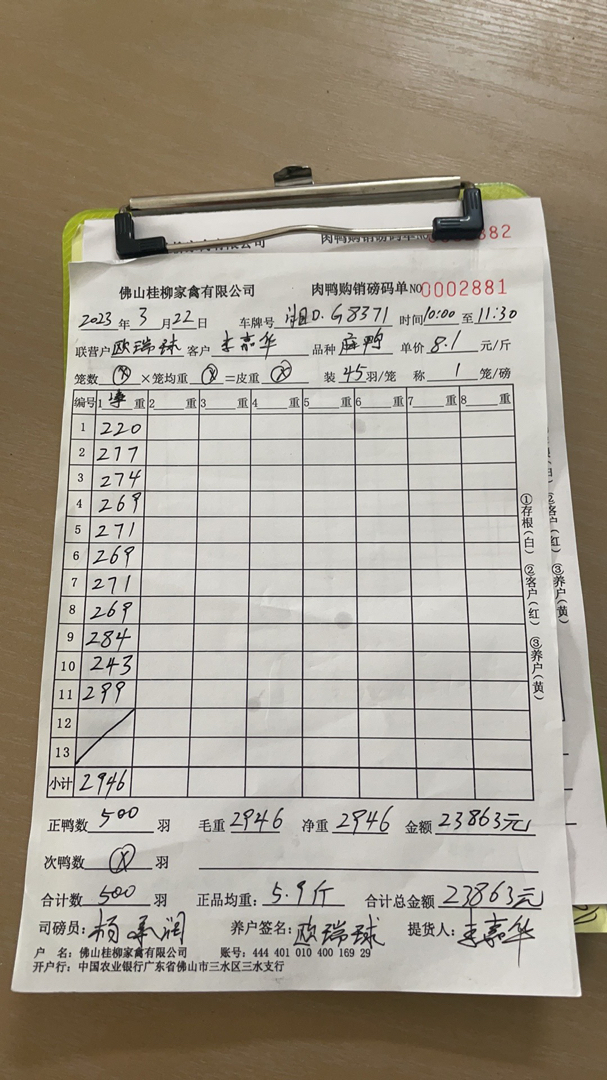 肉鸭购销磅码单NO
882
佛山桂柳家禽有限公司 肉鸭购销磅码单NO0002881
2023年3月22日 车牌号 D.G8371 时间10:00至11:30
联营户欧瑞球 客户 李嘉华 品种 麻鸭 单价8.1元/斤
笼数 ×笼均重 =皮重 装45羽/笼 称1笼/磅
编号 1 单重 2 重 3 重 4 重 5 重 6 重 7 重 8 重
1 220
2 277
3 274
4 269
5 271
6 269
7 271
8 269
9 284
10 243
11 299
12
13
小计 2946
正鸭数 500 羽 毛重 2946 净重 2946 金额 23863元
次鸭数 羽
合计数 500 羽 正品均重: 5.9斤 合计总金额 23863元
司磅员: 杨 润 养户签名: 欧瑞球 提货人: 李嘉华
户 名: 佛山桂柳家禽有限公司 账号: 444 401 010 400 169 29
开户行: 中国农业银行广东省佛山市三水区三水支行
①存根(白) ②客户(红) ③养户(黄)
②客户(红) ③养户(黄)